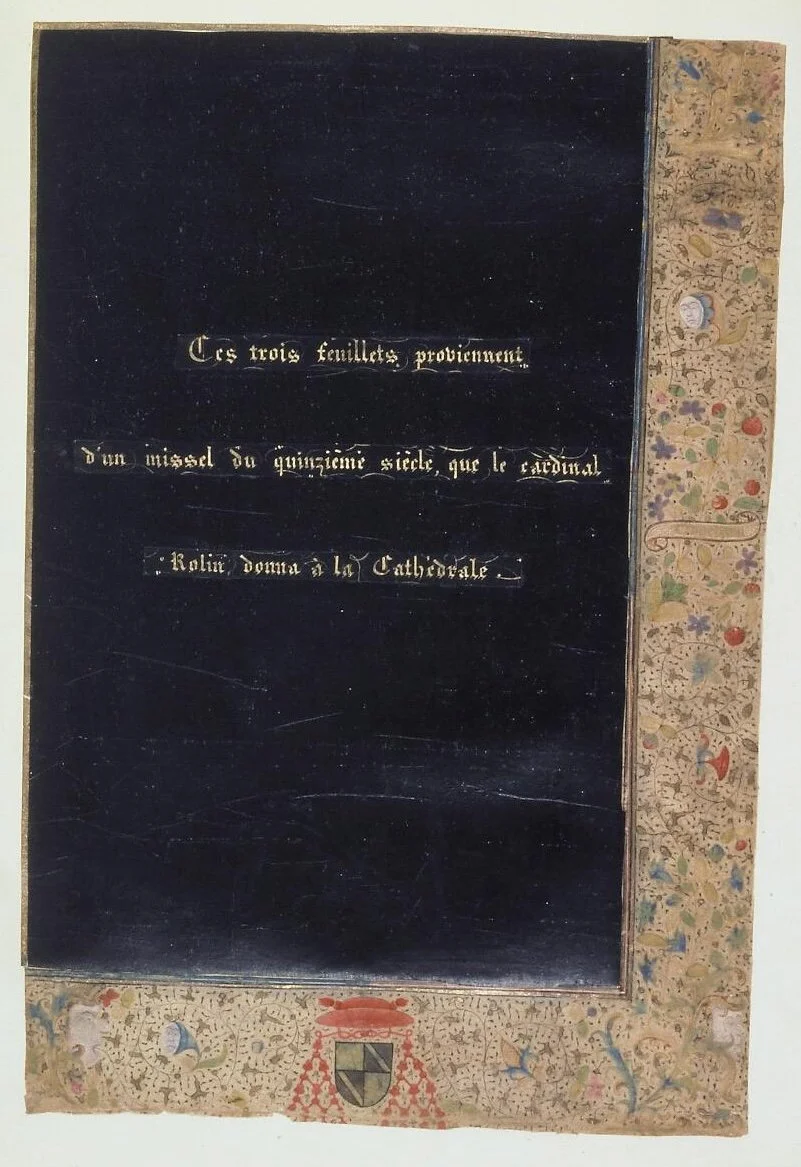 Ces trois feuillets proviennent
d'un missel du quinzième siècle, que le cardinal
Rolin donna à la Cathédrale.